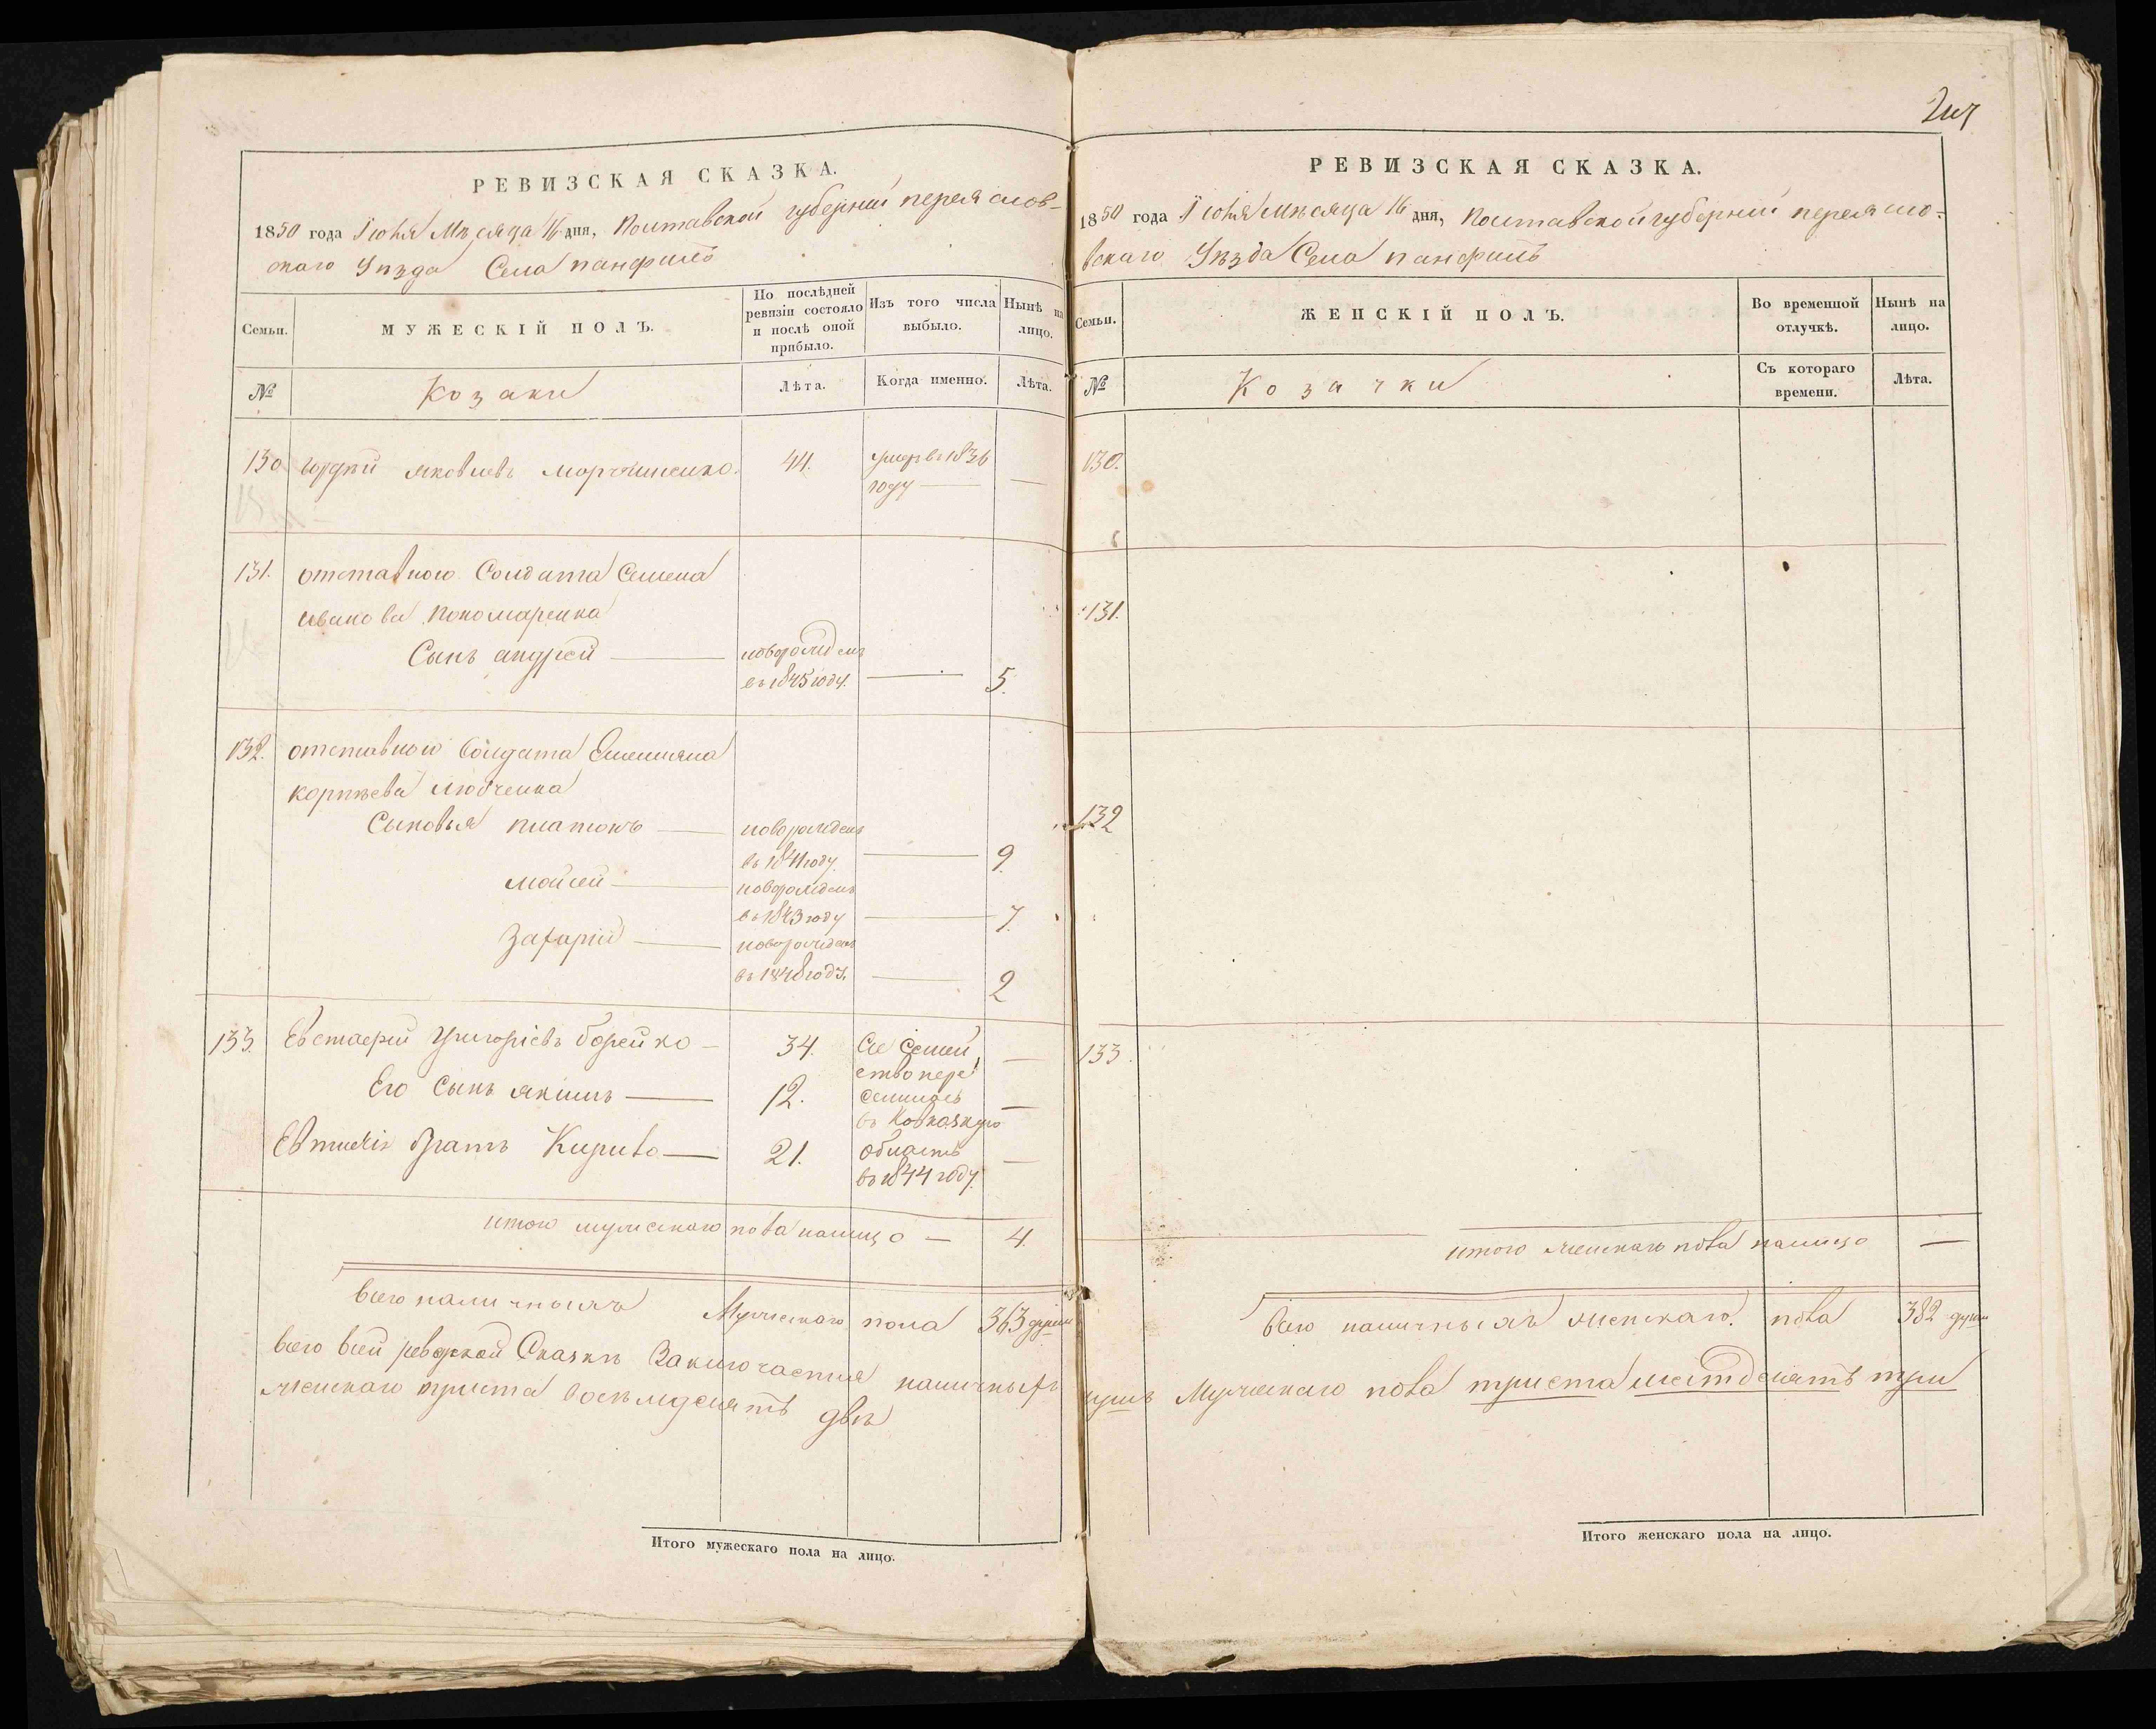 РЕВИЗСКАЯ СКАЗКА.
1850 года Іюня Мѣсяца 16 дня, Полтавской губерніи переяслов-
скаго Уѣзда Села панфилъ
Семьи.
МУЖЕСКІЙ ПОЛЪ.
По послѣдней ревизіи состояло и послѣ оной прибыло.
Изъ того числа выбыло.
Нынѣ на лицо.
№
Козаки
Лѣта.
Когда именно.
Лѣта.
130 яковлевъ 44. умеръ в 1836
году —
131. отставного Солдата Семена
иванова пономаренка
Сынъ андрей — новорожденъ
въ 1845 году. — 5.
132. отставного Солдата Емельяна
корнѣева любченка
Сыновья платонъ — новорожденъ
въ 1841 году — 9.
мойсей — новорожденъ
въ 1843 году — 7.
Захарій — новорожденъ
въ 1848 году. — 2
133. Евстафій григоріевъ борейко — 34. Сіе Семей —
ство пере
Его Сынъ якимъ — 12. селилось —
въ Кавказкую
Евстафія братъ Кирило — 21. область —
въ 1844 году.
итого мужескаго пола налицо — 4.
Всего наличныхъ Мужескаго пола 363 души
всего всей Сказкѣ Заключается наличныхъ
женскаго триста восемдесятъ двѣ
Итого мужескаго пола на лицо.
РЕВИЗСКАЯ СКАЗКА.
1850 года Іюня Мѣсяца 16 дня, Полтавской губерніи переясло-
вскаго Уѣзда Села панфилъ
Семьи.
ЖЕНСКІЙ ПОЛЪ.
Во временной отлучкѣ.
Нынѣ на лицо.
№
Козачки
Съ котораго времени.
Лѣта.
130.
131.
132
133.
итого женскаго пола налицо —
Всего наличныхъ женскаго пола 382 души
душъ Мужескаго пола триста шестдесятъ три
Итого женскаго пола на лицо.